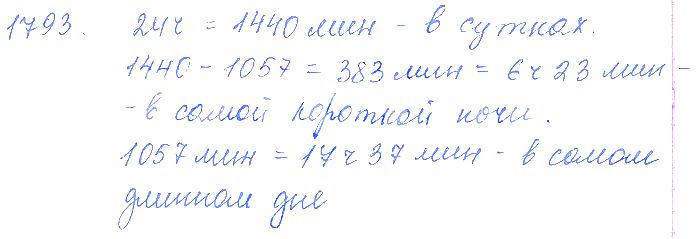 1793. 24ч = 1440 мин - в сутках.
1440 - 1057 = 383 мин = 6ч 23 мин -
- в самой короткой ночи.
1057 мин = 17ч 37 мин - в самом
длинном дне